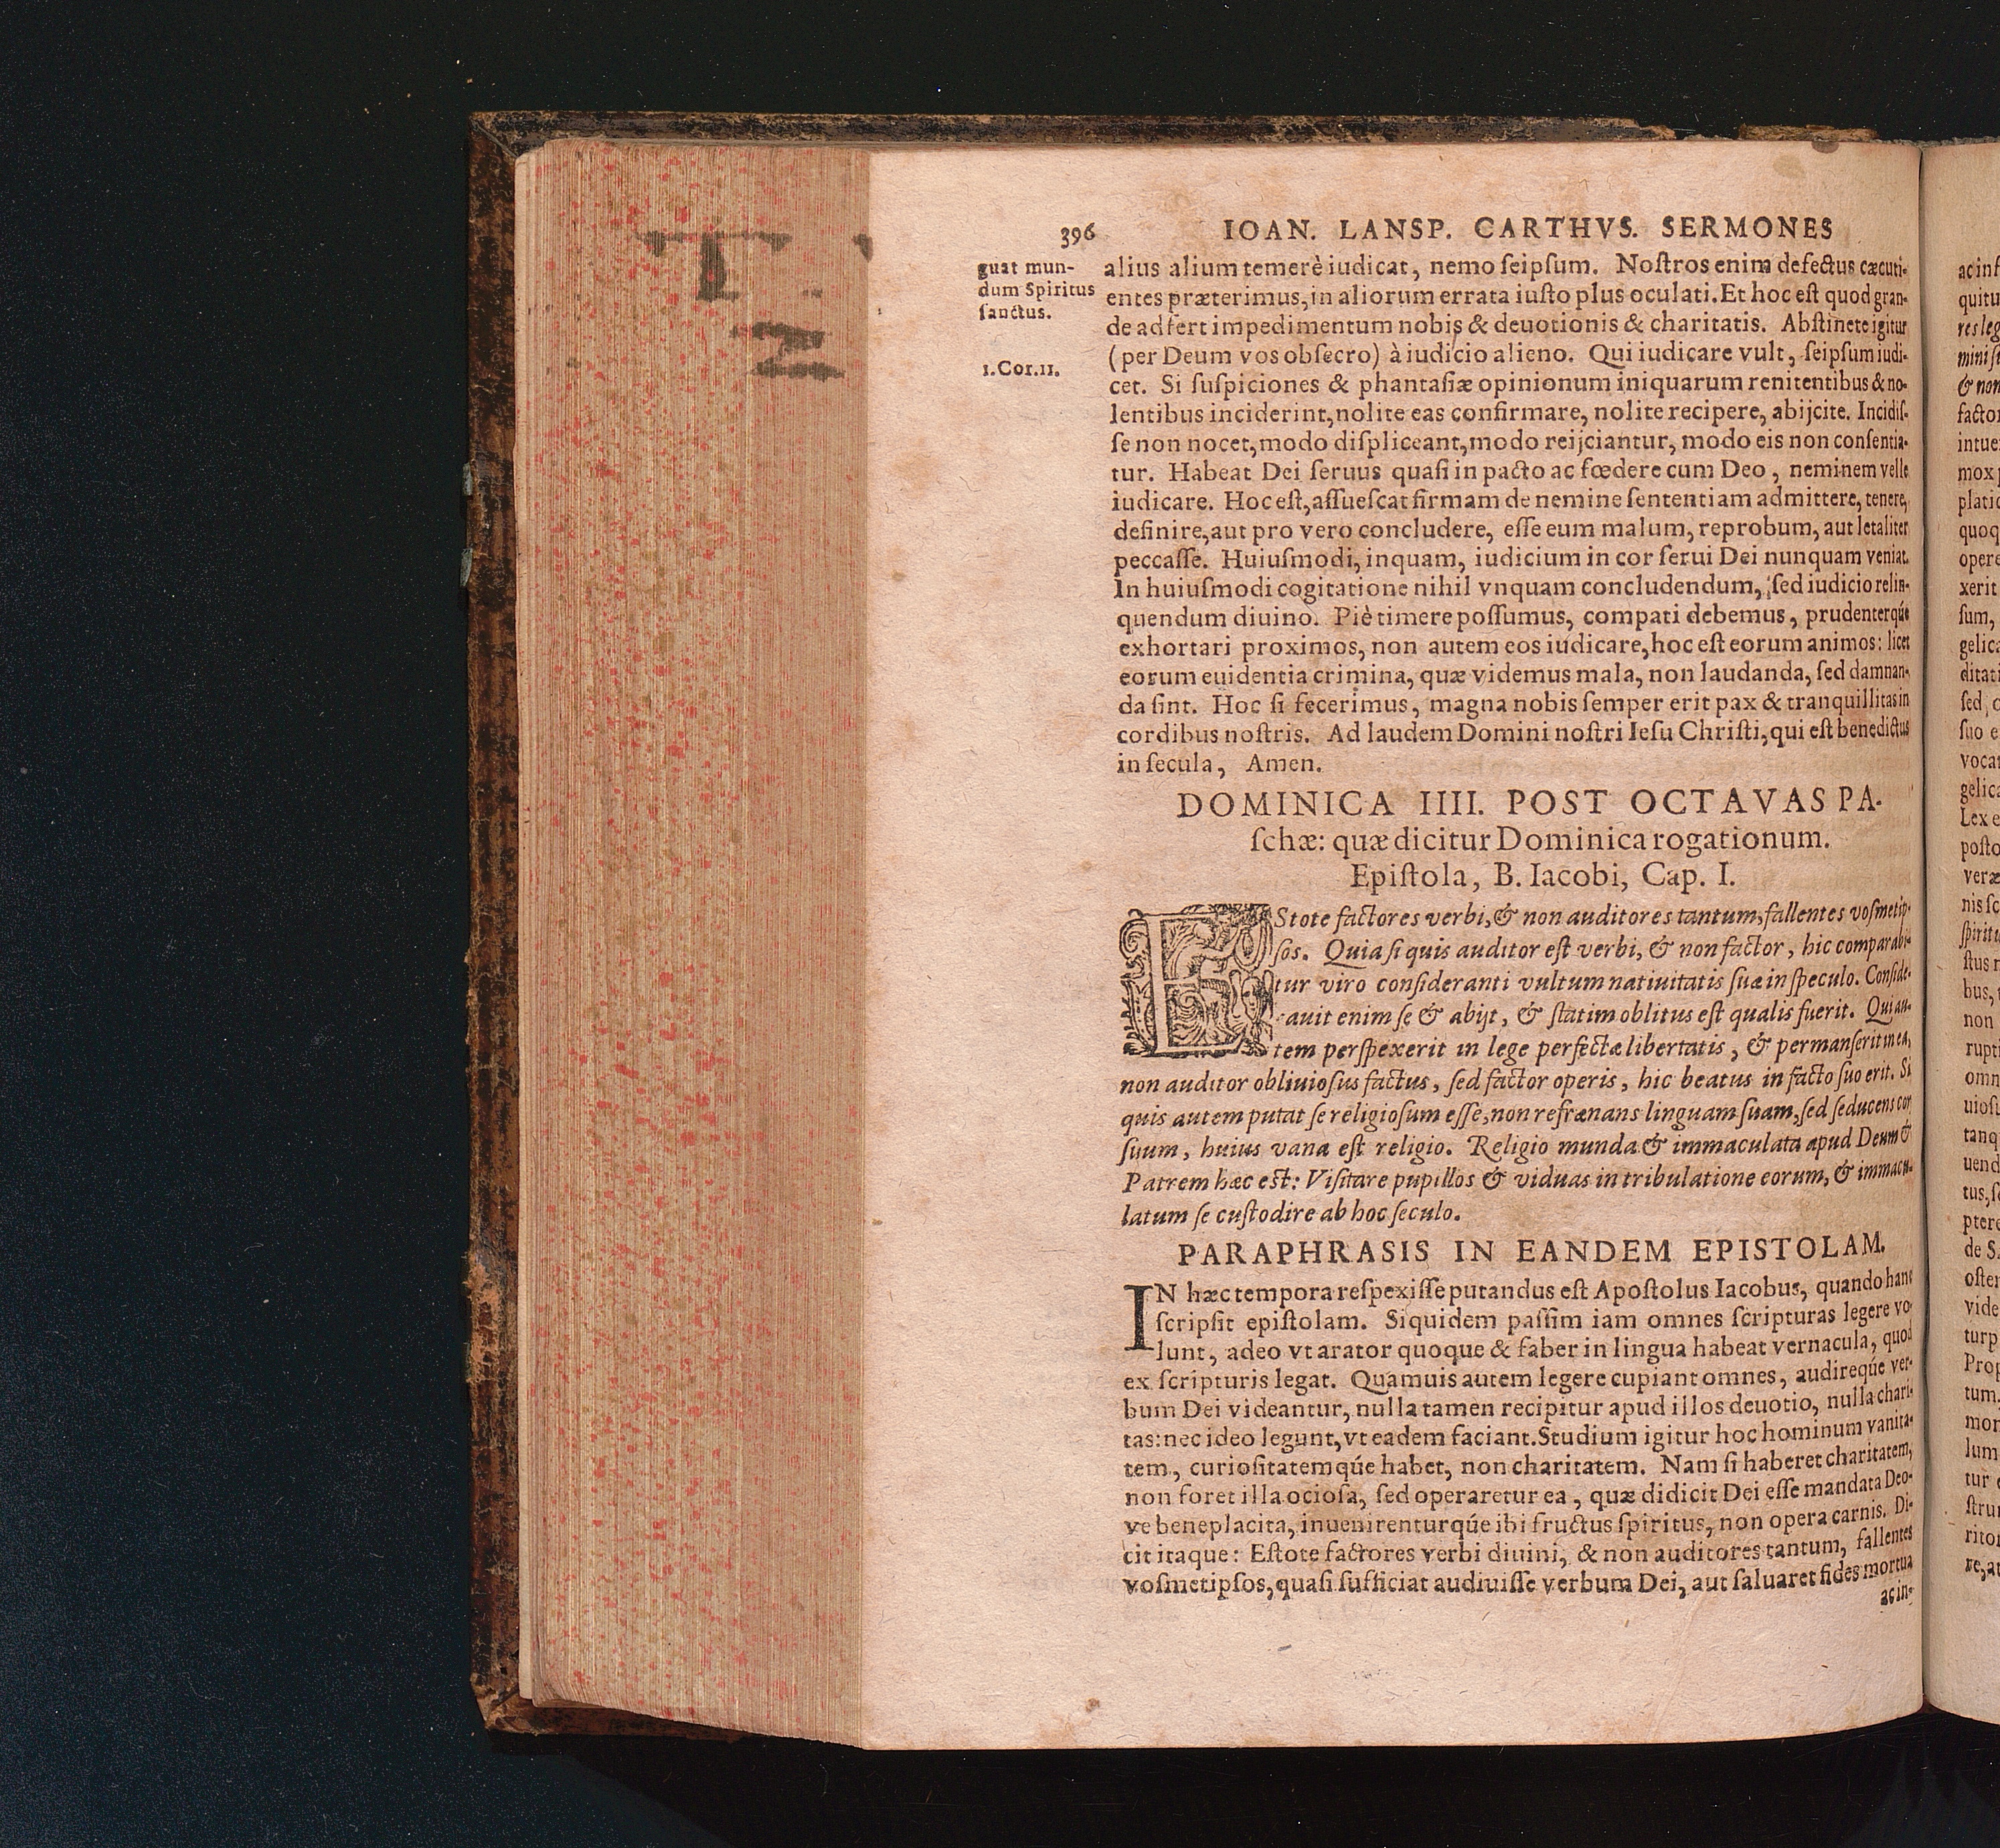 396 IOAN. LANSP. CARTHVS. SERMONES
guat mun-
dum Spiritus
ſanctus.
1.Cor.11.
alius alium temerè iudicat, nemo ſeipſum. Noſtros enim defectus cæcuti-
entes præterimus, in aliorum errata iuſto plus oculati. Et hoc eſt quod gran-
de adfert impedimentum nobis & deuotionis & charitatis. Abſtinete igitur
(per Deum vos obſecro) à iudicio alieno. Qui iudicare vult, ſeipſum iudi-
cet. Si ſuſpiciones & phantaſiæ opinionum iniquarum renitentibus & no-
lentibus inciderint, nolite eas confirmare, nolite recipere, abijcite. Incidiſ-
ſe non nocet, modo diſpliceant, modo reijciantur, modo eis non conſentia-
tur. Habeat Dei ſeruus quaſi in pacto ac fœdere cum Deo, neminem velle
iudicare. Hoc eſt, aſſueſcat firmam de nemine ſententiam admittere, tenere,
definire, aut pro vero concludere, eſſe eum malum, reprobum, aut letaliter
peccaſſe. Huiuſmodi, inquam, iudicium in cor ſerui Dei nunquam veniat.
In huiuſmodi cogitatione nihil vnquam concludendum, ſed iudicio relin-
quendum diuino. Piè timere poſſumus, compati debemus, prudenterqúe
exhortari proximos, non autem eos iudicare, hoc eſt eorum animos: licet
eorum euidentia crimina, quæ videmus mala, non laudanda, ſed damnan-
da ſint. Hoc ſi fecerimus, magna nobis ſemper erit pax & tranquillitas in
cordibus noſtris. Ad laudem Domini noſtri Ieſu Chriſti, qui eſt benedictus
in ſecula, Amen.
DOMINICA IIII. POST OCTAVAS PA-
ſchæ: quæ dicitur Dominica rogationum.
Epiſtola, B. Iacobi, Cap. I.
EStote factores verbi, & non auditores tantum, fallentes voſmetip-
ſos. Quia ſi quis auditor eſt verbi, & non factor, hic comparabi-
tur viro conſideranti vultum natiuitatis ſuæ in ſpeculo. Conſide-
rauit enim ſe & abijt, & ſtatim oblitus eſt qualis fuerit. Qui au-
tem perſpexerit in lege perfectæ libertatis, & permanſerit in ea,
non auditor obliuioſus factus, ſed factor operis, hic beatus in facto ſuo erit. Si
quis autem putat ſe religioſum eſſe, non refrænans linguam ſuam, ſed ſeducens cor
ſuum, huius vana eſt religio. Religio munda & immaculata apud Deum &
Patrem hæc eſt: Viſitare pupillos & viduas in tribulatione eorum, & immacu-
latum ſe cuſtodire ab hoc ſeculo.
PARAPHRASIS IN EANDEM EPISTOLAM.
IN hæc tempora reſpexiſſe putandus eſt Apoſtolus Iacobus, quando hanc
ſcripſit epiſtolam. Siquidem paſſim iam omnes ſcripturas legere vo-
lunt, adeo vt arator quoque & faber in lingua habeat vernacula, quod
ex ſcripturis legat. Quamuis autem legere cupiant omnes, audireqúe ver-
bum Dei videantur, nulla tamen recipitur apud illos deuotio, nulla chari-
tas: nec ideo legunt, vt eadem faciant. Studium igitur hoc hominum vanita-
tem, curioſitatemqúe habet, non charitatem. Nam ſi haberet charitatem,
non foret illa ocioſa, ſed operaretur ea, quæ didicit Dei eſſe mandata Deo-
ve beneplacita, inuenirenturqúe ibi fructus ſpiritus, non opera carnis. Di-
cit itaque: Eſtote factores verbi diuini, & non auditores tantum, fallentes
voſmetipſos, quaſi ſufficiat audiuiſſe verbum Dei, aut ſaluaret fides mortua
ac in-